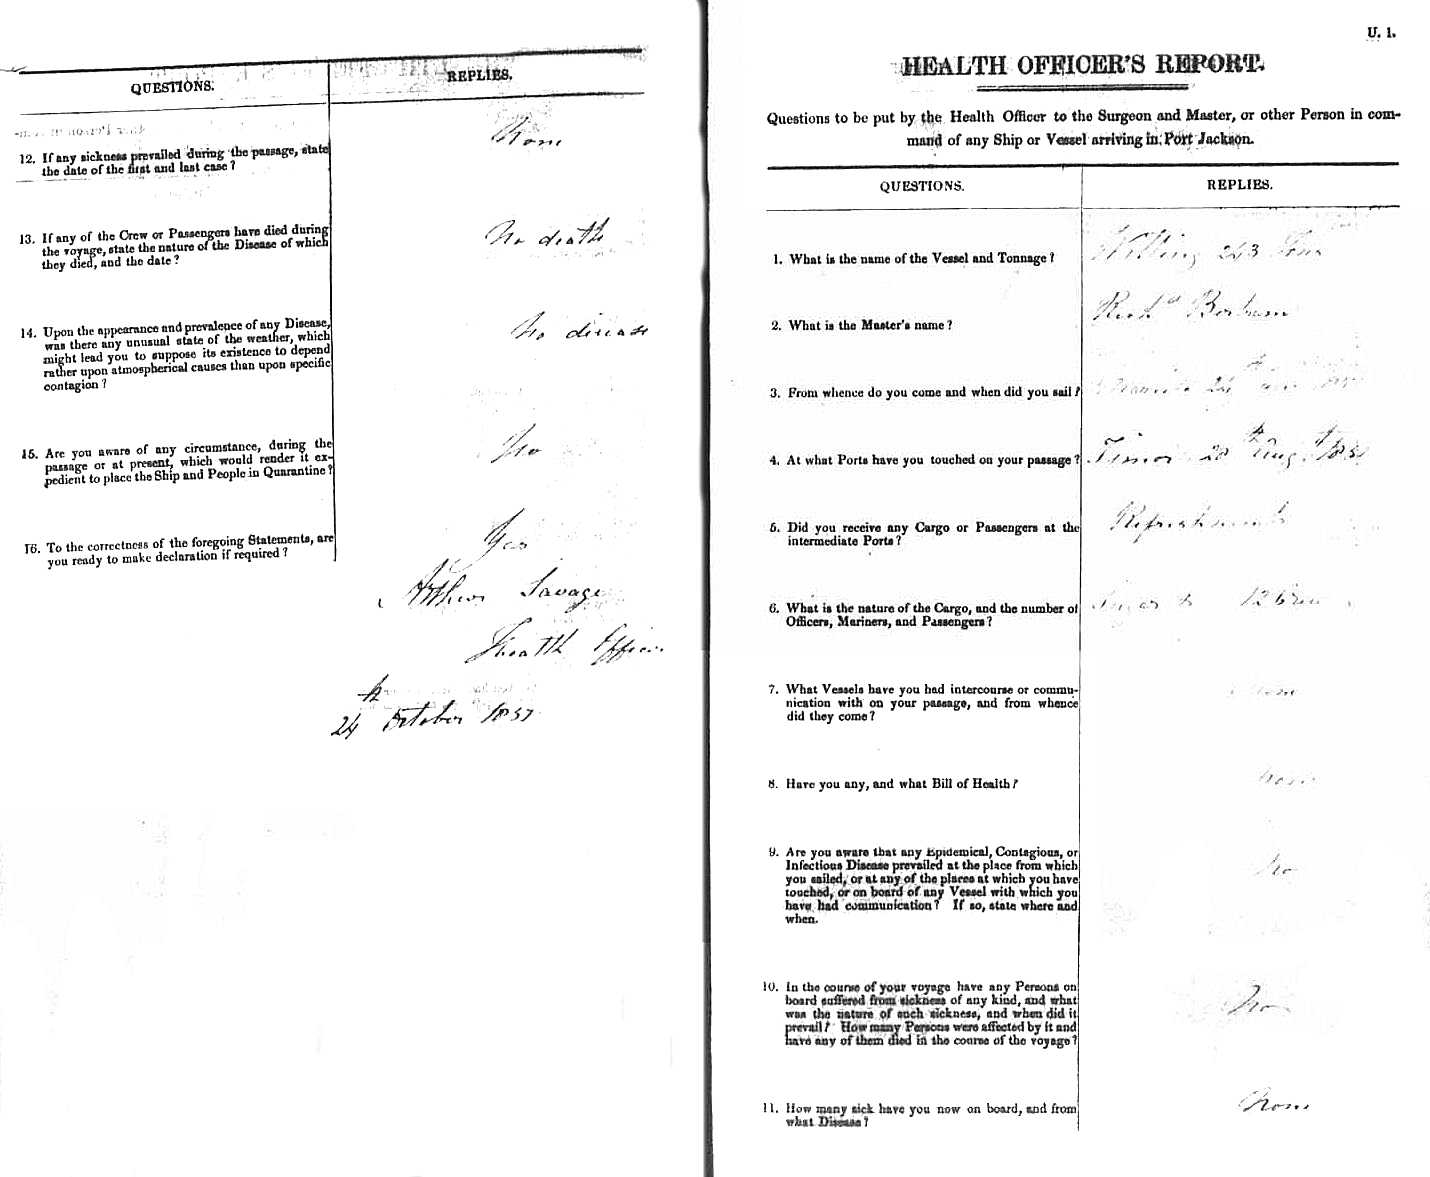 U. 1.
HEALTH OFFICER'S REPORT.
Questions to be put by the Health Officer to the Surgeon and Master, or other Person in com-
mand of any Ship or Vessel arriving in Port Jackson.
QUESTIONS.
REPLIES.
1. What is the name of the Vessel and Tonnage?
243 Tons
2. What is the Master's name?
Richd
3. From whence do you come and when did you sail?
24th
4. At what Ports have you touched on your passage?
Timor 20th Augt 1851
5. Did you receive any Cargo or Passengers at the
intermediate Ports?
Refreshments
6. What is the nature of the Cargo, and the number of
Officers, Mariners, and Passengers?
Sugar & 12
7. What Vessels have you had intercourse or commu-
nication with on your passage, and from whence
did they come?
None
8. Have you any, and what Bill of Health?
None
9. Are you aware that any Epidemical, Contagious, or
Infectious Disease prevailed at the place from which
you sailed, or at any of the places at which you have
touched, or on board of any Vessel with which you
have had communication? If so, state where and
when.
No
10. In the course of your voyage have any Persons on
board suffered from sickness of any kind, and what
was the nature of such sickness, and when did it
prevail? How many Persons were affected by it and
have any of them died in the course of the voyage?
No
11. How many sick have you now on board, and from
what Disease?
None
QUESTIONS.
REPLIES.
12. If any sickness prevailed during the passage, state
the date of the first and last case?
None
13. If any of the Crew or Passengers have died during
the voyage, state the nature of the Disease of which
they died, and the date?
No death
14. Upon the appearance and prevalence of any Disease,
was there any unusual state of the weather, which
might lead you to suppose its existence to depend
rather upon atmospherical causes than upon specific
contagion?
No disease
15. Are you aware of any circumstance, during the
passage or at present, which would render it ex-
pedient to place the Ship and People in Quarantine?
No
16. To the correctness of the foregoing Statements, are
you ready to make declaration if required?
Yes
Arthur Savage
Health Officer
24th October 1851